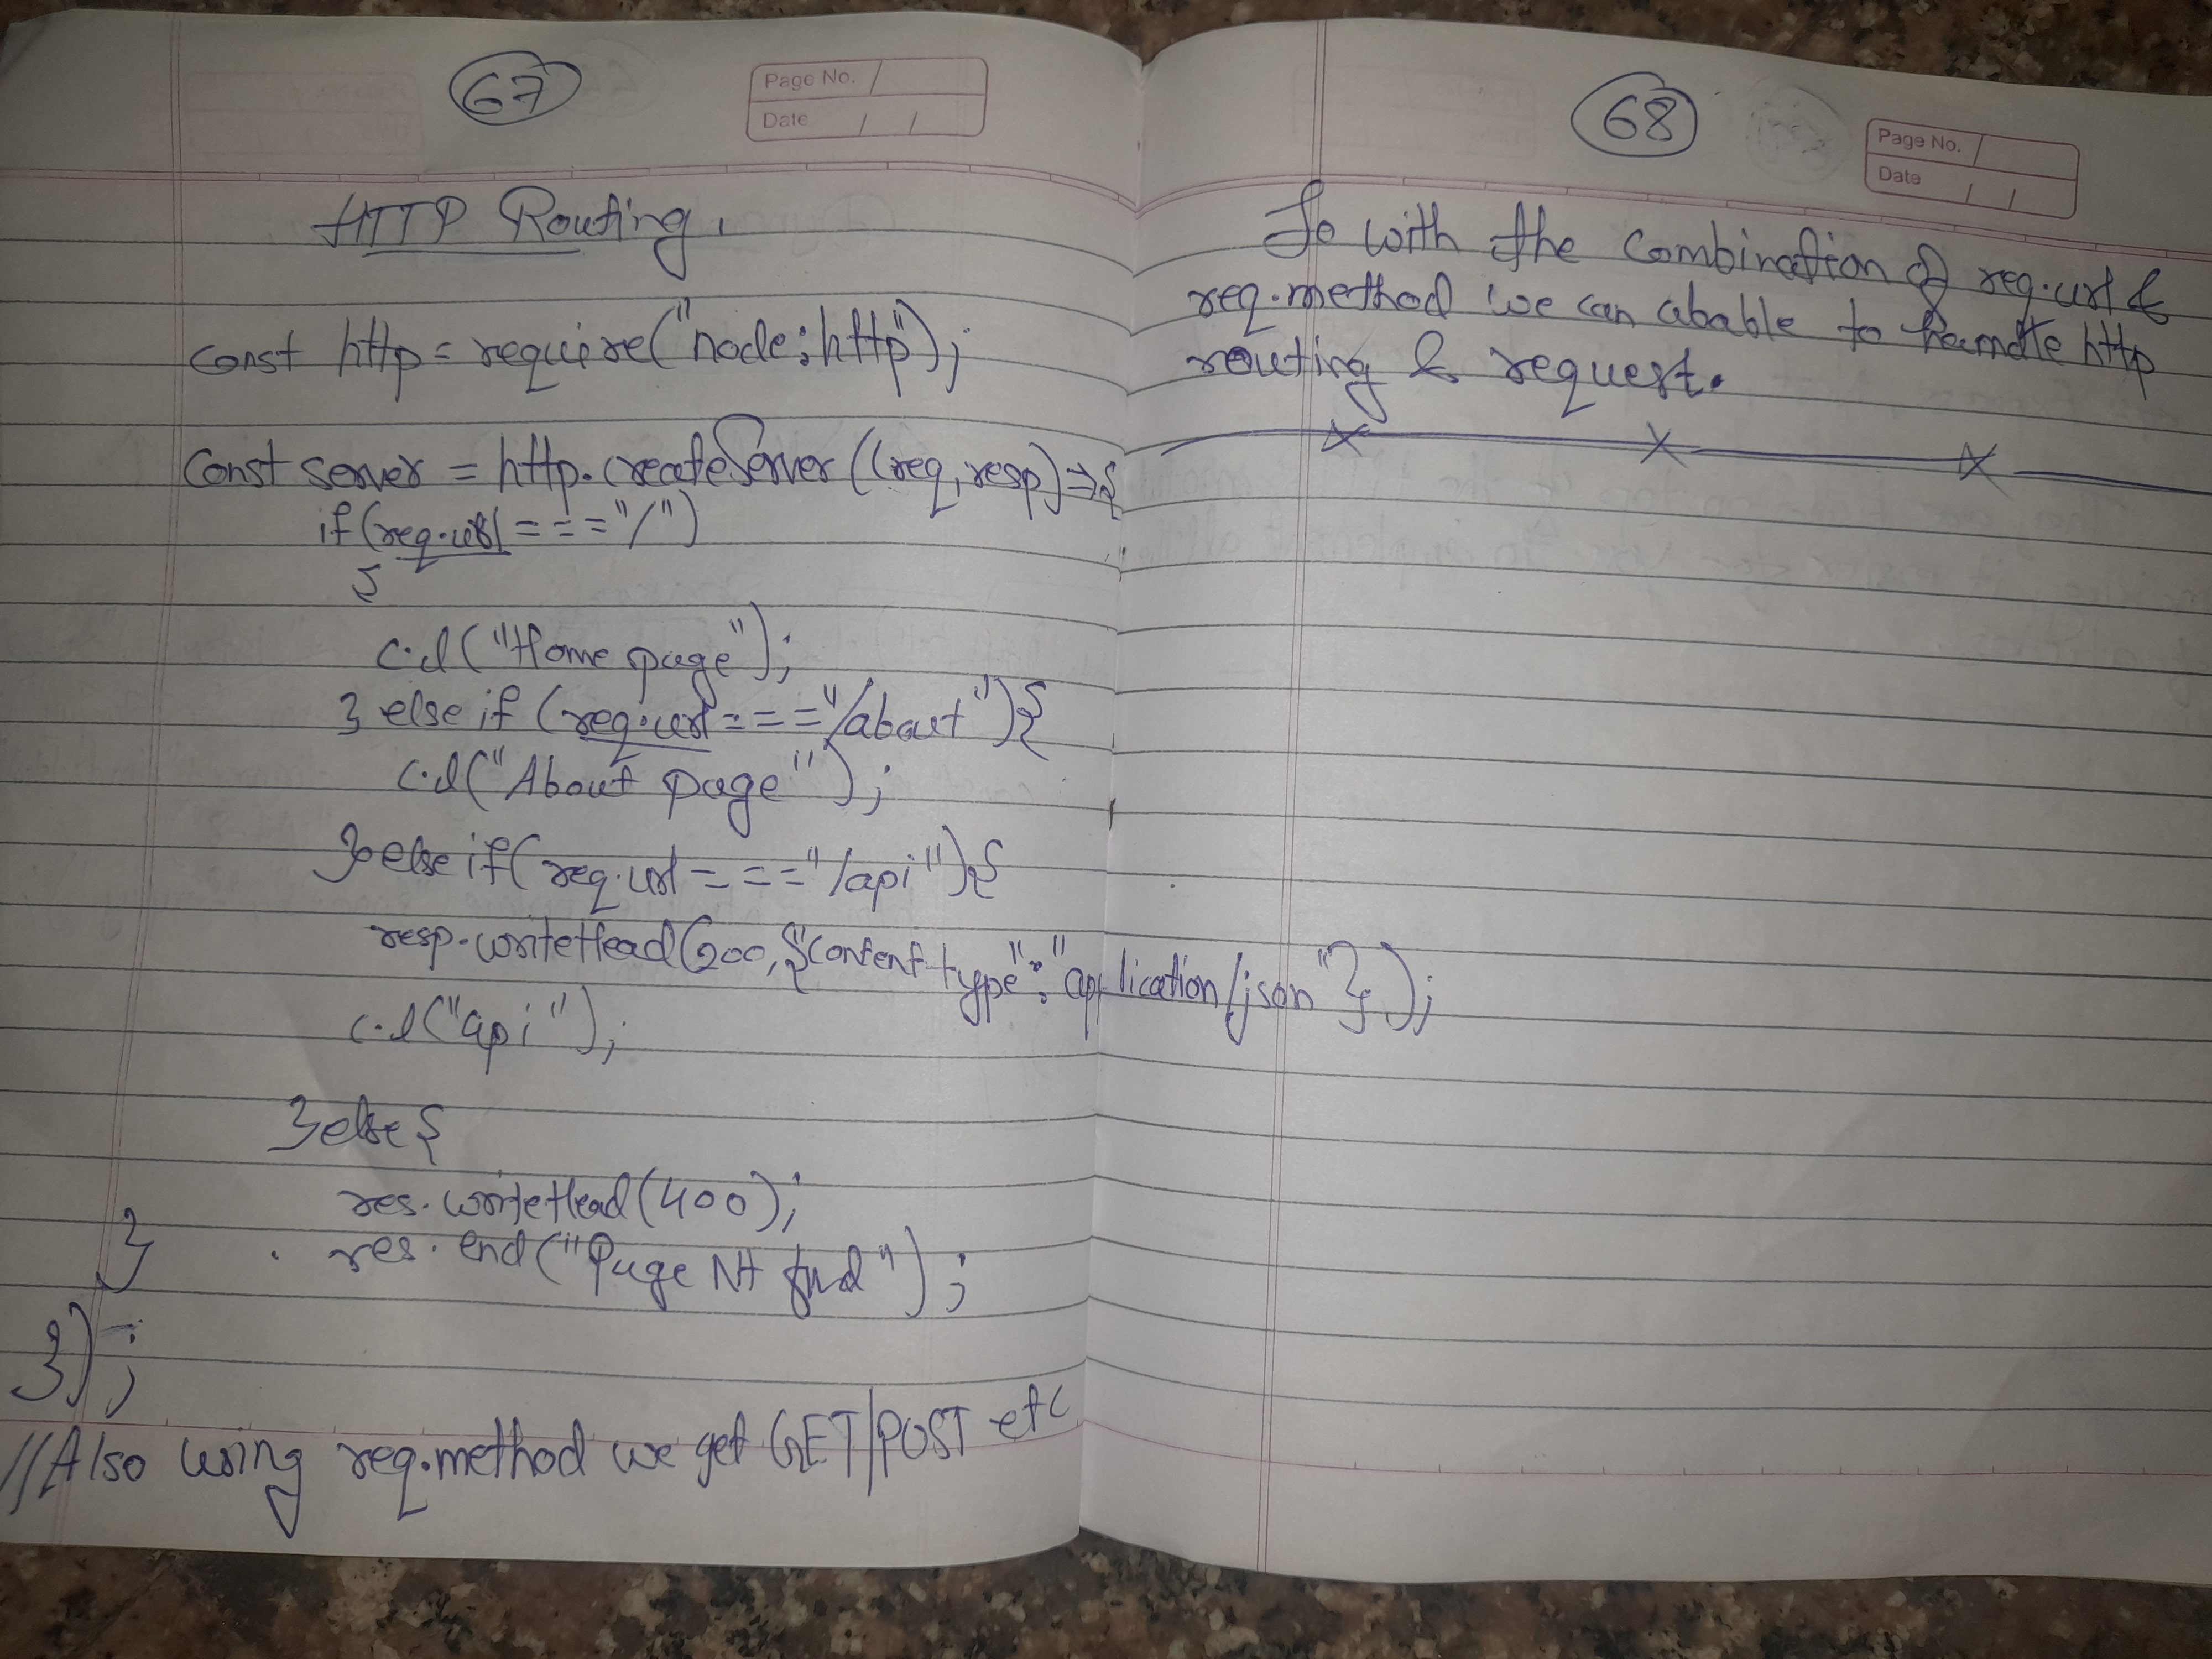 67
Page No.
Date / /
HTTP Routing.
const http = require("node:http");
Const server = http.createServer((req, resp) => {
if (req.url === "/")
{
c.l("Home page");
} else if (req.url === "/about"){
c.l("About page");
} else if (req.url === "/api"){
resp.writeHead(200, {"content-type": "application/json"});
c.l("api");
} else {
res.writeHead(400);
} res.end("Page Nt fnd");
});
//Also using req.method we get GET/POST etc
68
Page No.
Date / /
So with the combination of req.url &
req.method we can abable to handle http
routing & request.